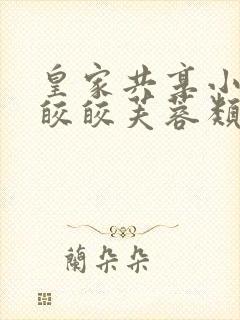 皇家共享小
皎皎芙蓉類
蘭朵朵